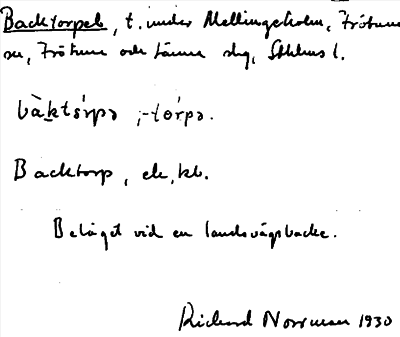 Backtorpet, t. under Mellingeholm, Frötuna
sn, Frötuna och Länna slg, Sthlms l.
bàktòrpə, -tórpə.
Backtorp, ek. kb.
Beläget vid en landsvägsbacke.
Richard Norrman 1930